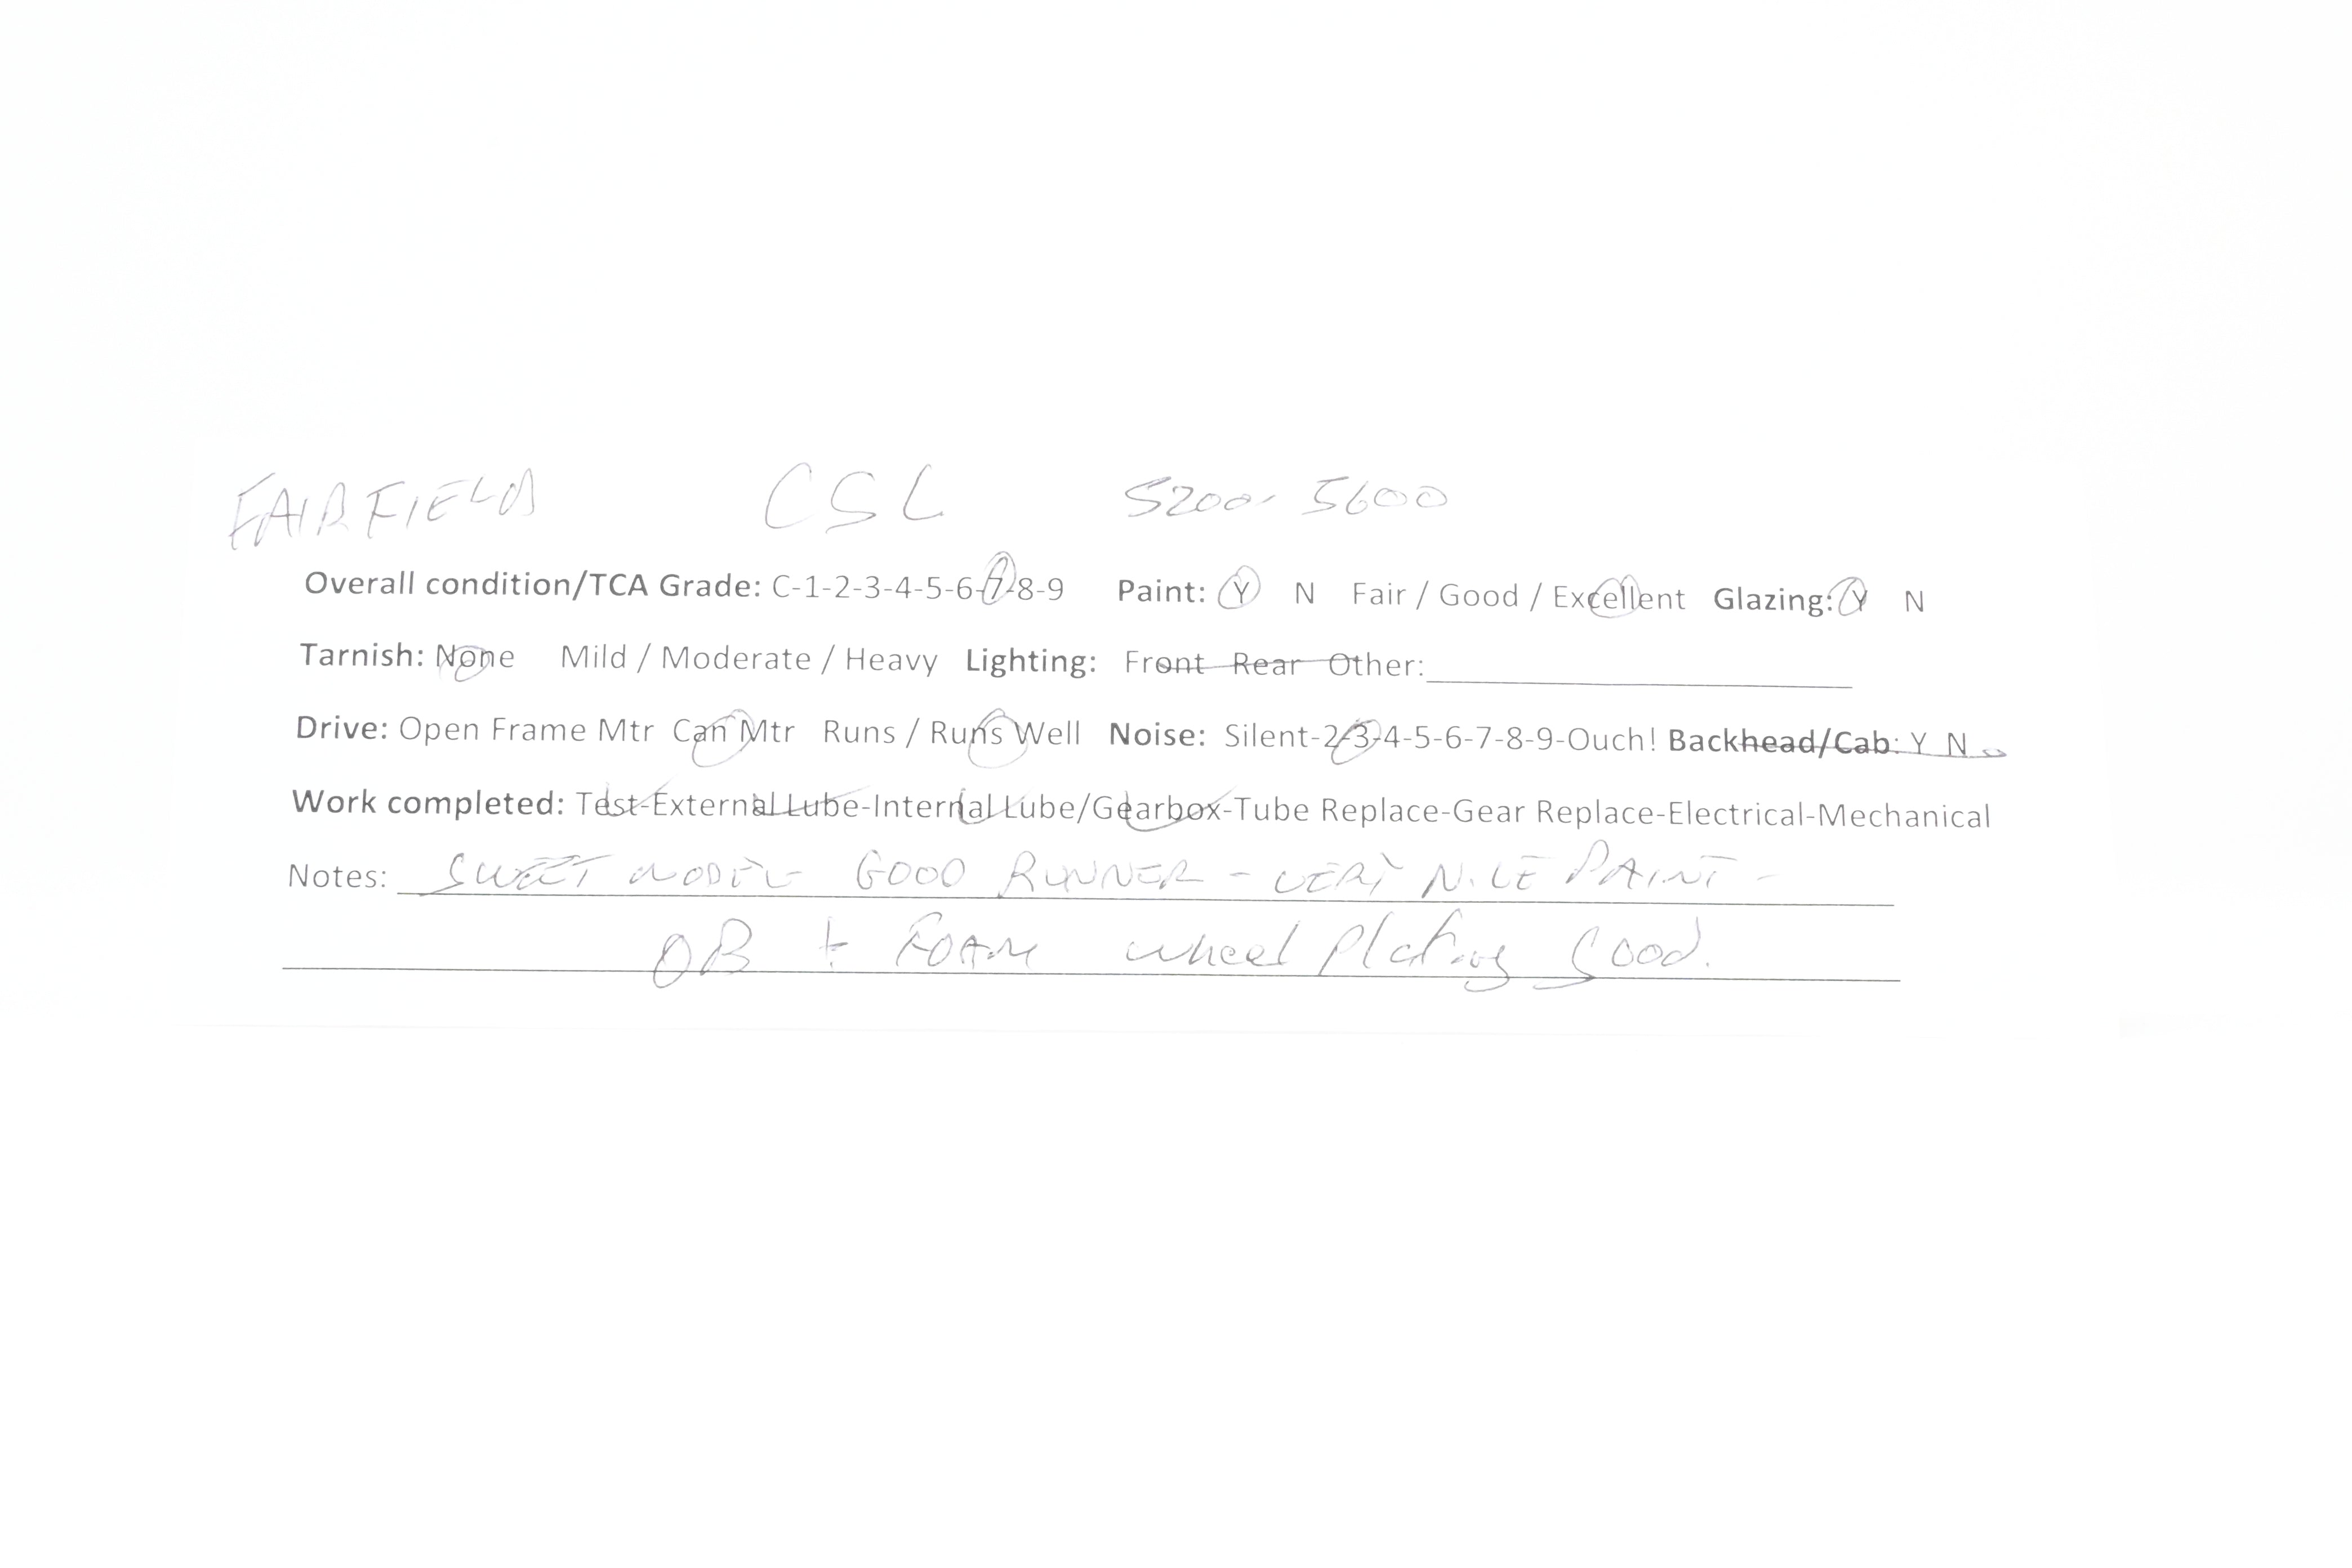 FAIRFIELD CSL 5200, 5600
Overall condition/TCA Grade: C-1-2-3-4-5-6-7-8-9 Paint: Y N Fair / Good / Excellent Glazing: Y N
Tarnish: None Mild / Moderate / Heavy Lighting: Front Rear Other:
Drive: Open Frame Mtr Can Mtr Runs / Runs Well Noise: Silent-2-3-4-5-6-7-8-9-Ouch! Backhead/Cab: Y N
Work completed: Test-External Lube-Internal Lube/Gearbox-Tube Replace-Gear Replace-Electrical-Mechanical
Notes: SWEET MODEL GOOD RUNNER - VERY NICE PAINT -
OB + FOAM wheel Plating Good.